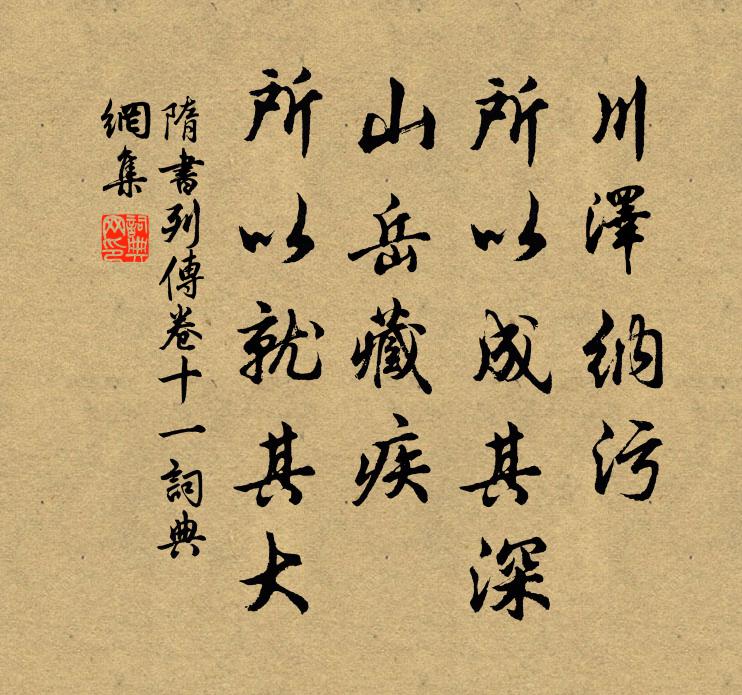 川澤納污
所以成其深
山岳藏疾
所以就其大
隋書列傳卷十一詞典
網集
詞典網印